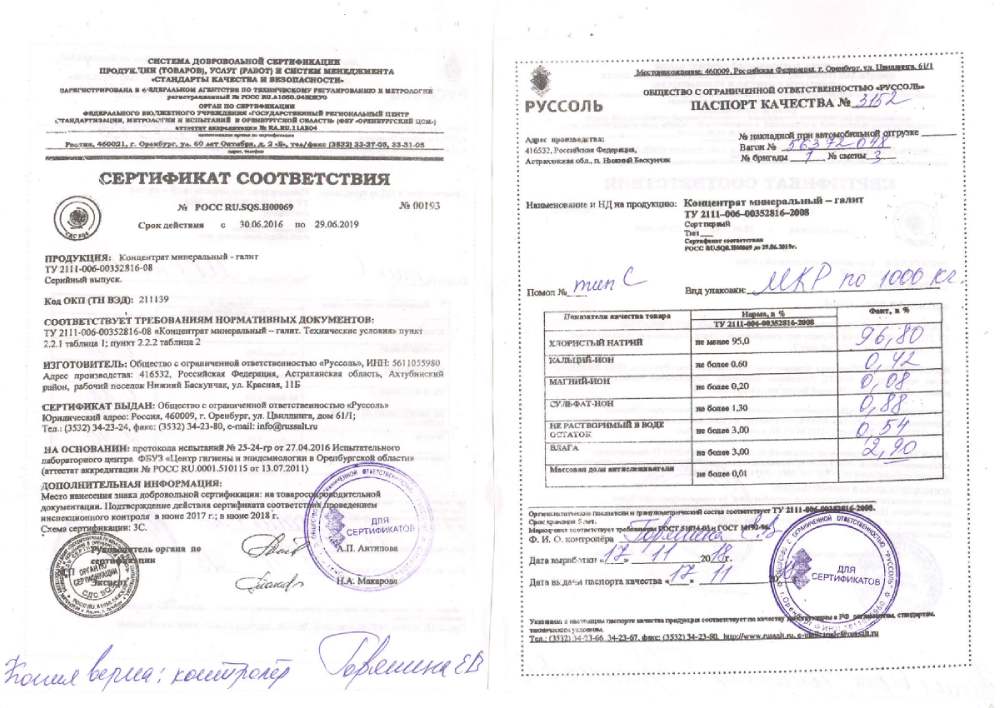 СИСТЕМА ДОБРОВОЛЬНОЙ СЕРТИФИКАЦИИ
ПРОДУКЦИИ (ТОВАРОВ), УСЛУГ (РАБОТ) И СИСТЕМ МЕНЕДЖМЕНТА
«СТАНДАРТЫ КАЧЕСТВА И БЕЗОПАСНОСТИ»
ЗАРЕГИСТРИРОВАНА В ФЕДЕРАЛЬНОМ АГЕНТСТВЕ ПО ТЕХНИЧЕСКОМУ РЕГУЛИРОВАНИЮ И МЕТРОЛОГИИ
регистрационный № РОСС
ОРГАН ПО СЕРТИФИКАЦИИ
ФЕДЕРАЛЬНОГО БЮДЖЕТНОГО УЧРЕЖДЕНИЯ «ГОСУДАРСТВЕННЫЙ РЕГИОНАЛЬНЫЙ ЦЕНТР
СТАНДАРТИЗАЦИИ, МЕТРОЛОГИИ И ИСПЫТАНИЙ В ОРЕНБУРГСКОЙ ОБЛАСТИ» (ФБУ «ОРЕНБУРГСКИЙ ЦСМ»)
аттестат аккредитации №
Россия, 460021, г. Оренбург, ул. 60 лет Октября, д. 2 «Б», тел/факс (3532) 33-37-05, 33-31-05
СЕРТИФИКАТ СООТВЕТСТВИЯ
№ РОСС RU.SQS.H00069 № 00193
Срок действия с 30.06.2016 по 29.06.2019
ПРОДУКЦИЯ: Концентрат минеральный - галит
ТУ 2111-006-00352816-08
Серийный выпуск.
Код ОКП (ТН ВЭД): 211139
СООТВЕТСТВУЕТ ТРЕБОВАНИЯМ НОРМАТИВНЫХ ДОКУМЕНТОВ:
ТУ 2111-006-00352816-08 «Концентрат минеральный – галит. Технические условия» пункт
2.2.1 таблица 1; пункт 2.2.2 таблица 2
ИЗГОТОВИТЕЛЬ: Общество с ограниченной ответственностью «Руссоль», ИНН: 5611055980
Адрес производства: 416532, Российская Федерация, Астраханская область, Ахтубинский
район, рабочий поселок Нижний Баскунчак, ул. Красная, 11Б
СЕРТИФИКАТ ВЫДАН: Общество с ограниченной ответственностью «Руссоль»
Юридический адрес: Россия, 460009, г. Оренбург, ул. Цвиллинга, дом 61/1;
Тел.: (3532) 34-23-24, факс: (3532) 34-23-80, e-mail: info@russalt.ru
НА ОСНОВАНИИ: протокола испытаний № 25-24-гр от 27.04.2016 Испытательного
лабораторного центра ФБУЗ «Центр гигиены и эпидемиологии в Оренбургской области»
(аттестат аккредитации № РОСС RU.0001.510115 от 13.07.2011)
ДОПОЛНИТЕЛЬНАЯ ИНФОРМАЦИЯ:
Место нанесения знака добровольной сертификации: на товаросопроводительной
документации. Подтверждение действия сертификата соответствия проведением
инспекционного контроля в июне 2017 г.; в июне 2018 г.
Схема сертификации: 3С.
Руководитель органа по
сертификации
А.П. Антипова
Эксперт
Н.А. Макарова
ОРГАН ПО СЕРТИФИКАЦИИ
ДЛЯ
СЕРТИФИКАТОВ
Копия верна: контролер Горяшина ЕВ
Местонахождение: 460009, Российская Федерация, г. Оренбург, ул. Цвиллинга, 61/1
ОБЩЕСТВО С ОГРАНИЧЕННОЙ ОТВЕТСТВЕННОСТЬЮ «РУССОЛЬ»
РУССОЛЬ
ПАСПОРТ КАЧЕСТВА № 3152
Адрес производства:
416532, Российская Федерация,
Астраханская обл., п. Нижний Баскунчак
№ накладной при автомобильной отгрузке
Вагон № 56372048
№ бригады 7 № смены 3
Наименование и НД на продукцию: Концентрат минеральный – галит
ТУ 2111–006–00352816–2008
Сорт первый
Тип
Сертификат соответствия
РОСС RU.SQS.H00069 до 29.06.2019г.
Помол № тип С Вид упаковки: МКР по 1000 кг.
Показатели качества товара Норма, в % Факт, в %
ТУ 2111-006-00352816-2008
ХЛОРИСТЫЙ НАТРИЙ не менее 95,0 96,80
КАЛЬЦИЙ-ИОН не более 0,60 0,42
МАГНИЙ-ИОН не более 0,20 0,08
СУЛЬФАТ-ИОН не более 1,30 0,88
НЕ РАСТВОРИМЫЙ В ВОДЕ ОСТАТОК не более 3,00 0,54
ВЛАГА не более 3,00 2,90
Массовая доля антислеживателя не более 0,01
Органолептические показатели и гранулометрический состав соответствует ТУ 2111-006-00352816-2008.
Срок хранения 5 лет.
Маркировка соответствует требованиям ГОСТ
Ф. И. О. контролёра Горяшина Е.В
Дата выработки «17» 11 2018 г.
Дата выдачи паспорта качества «17» 11
ДЛЯ
СЕРТИФИКАТОВ
Указанная в настоящем паспорте качества продукция соответствует по качеству действующим в РФ стандартам,
техническим условиям.
Тел.: (3532) 34-23-66, 34-23-67, факс: (3532) 34-23-80, http://www.russalt.ru,